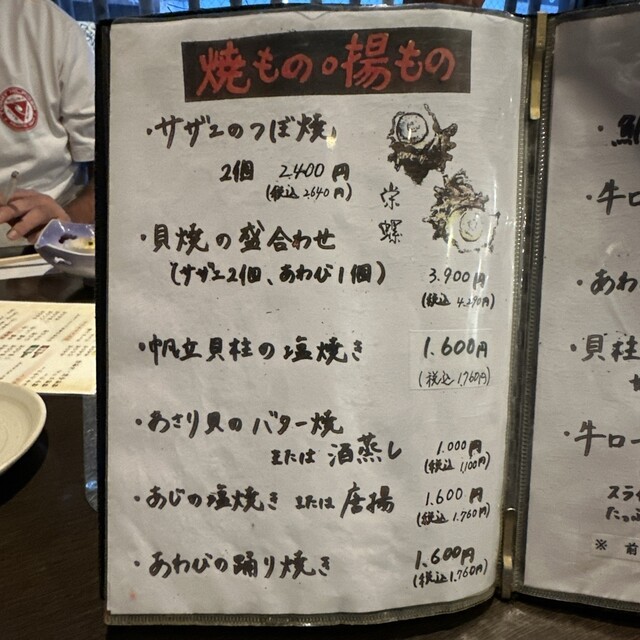 焼もの。揚もの
・サザエのつぼ焼
2個 2.400円
(税込 2640円)
栄螺
・貝焼の盛合わせ
(サザエ2個、あわび1個)
3.900円
(税込 4.290円)
・帆立貝柱の塩焼き 1.600円
(税込 1.760円)
・あさり貝のバター焼
または 酒蒸し
1.000円
(税込 1,100円)
・あじの塩焼き または 唐揚 1.600円
(税込 1.760円)
・あわびの踊り焼き 1.600円
(税込 1.760円)
・牛ロ
・あわ
・貝柱
・牛ロー
スライ
たっぷ
※ 前